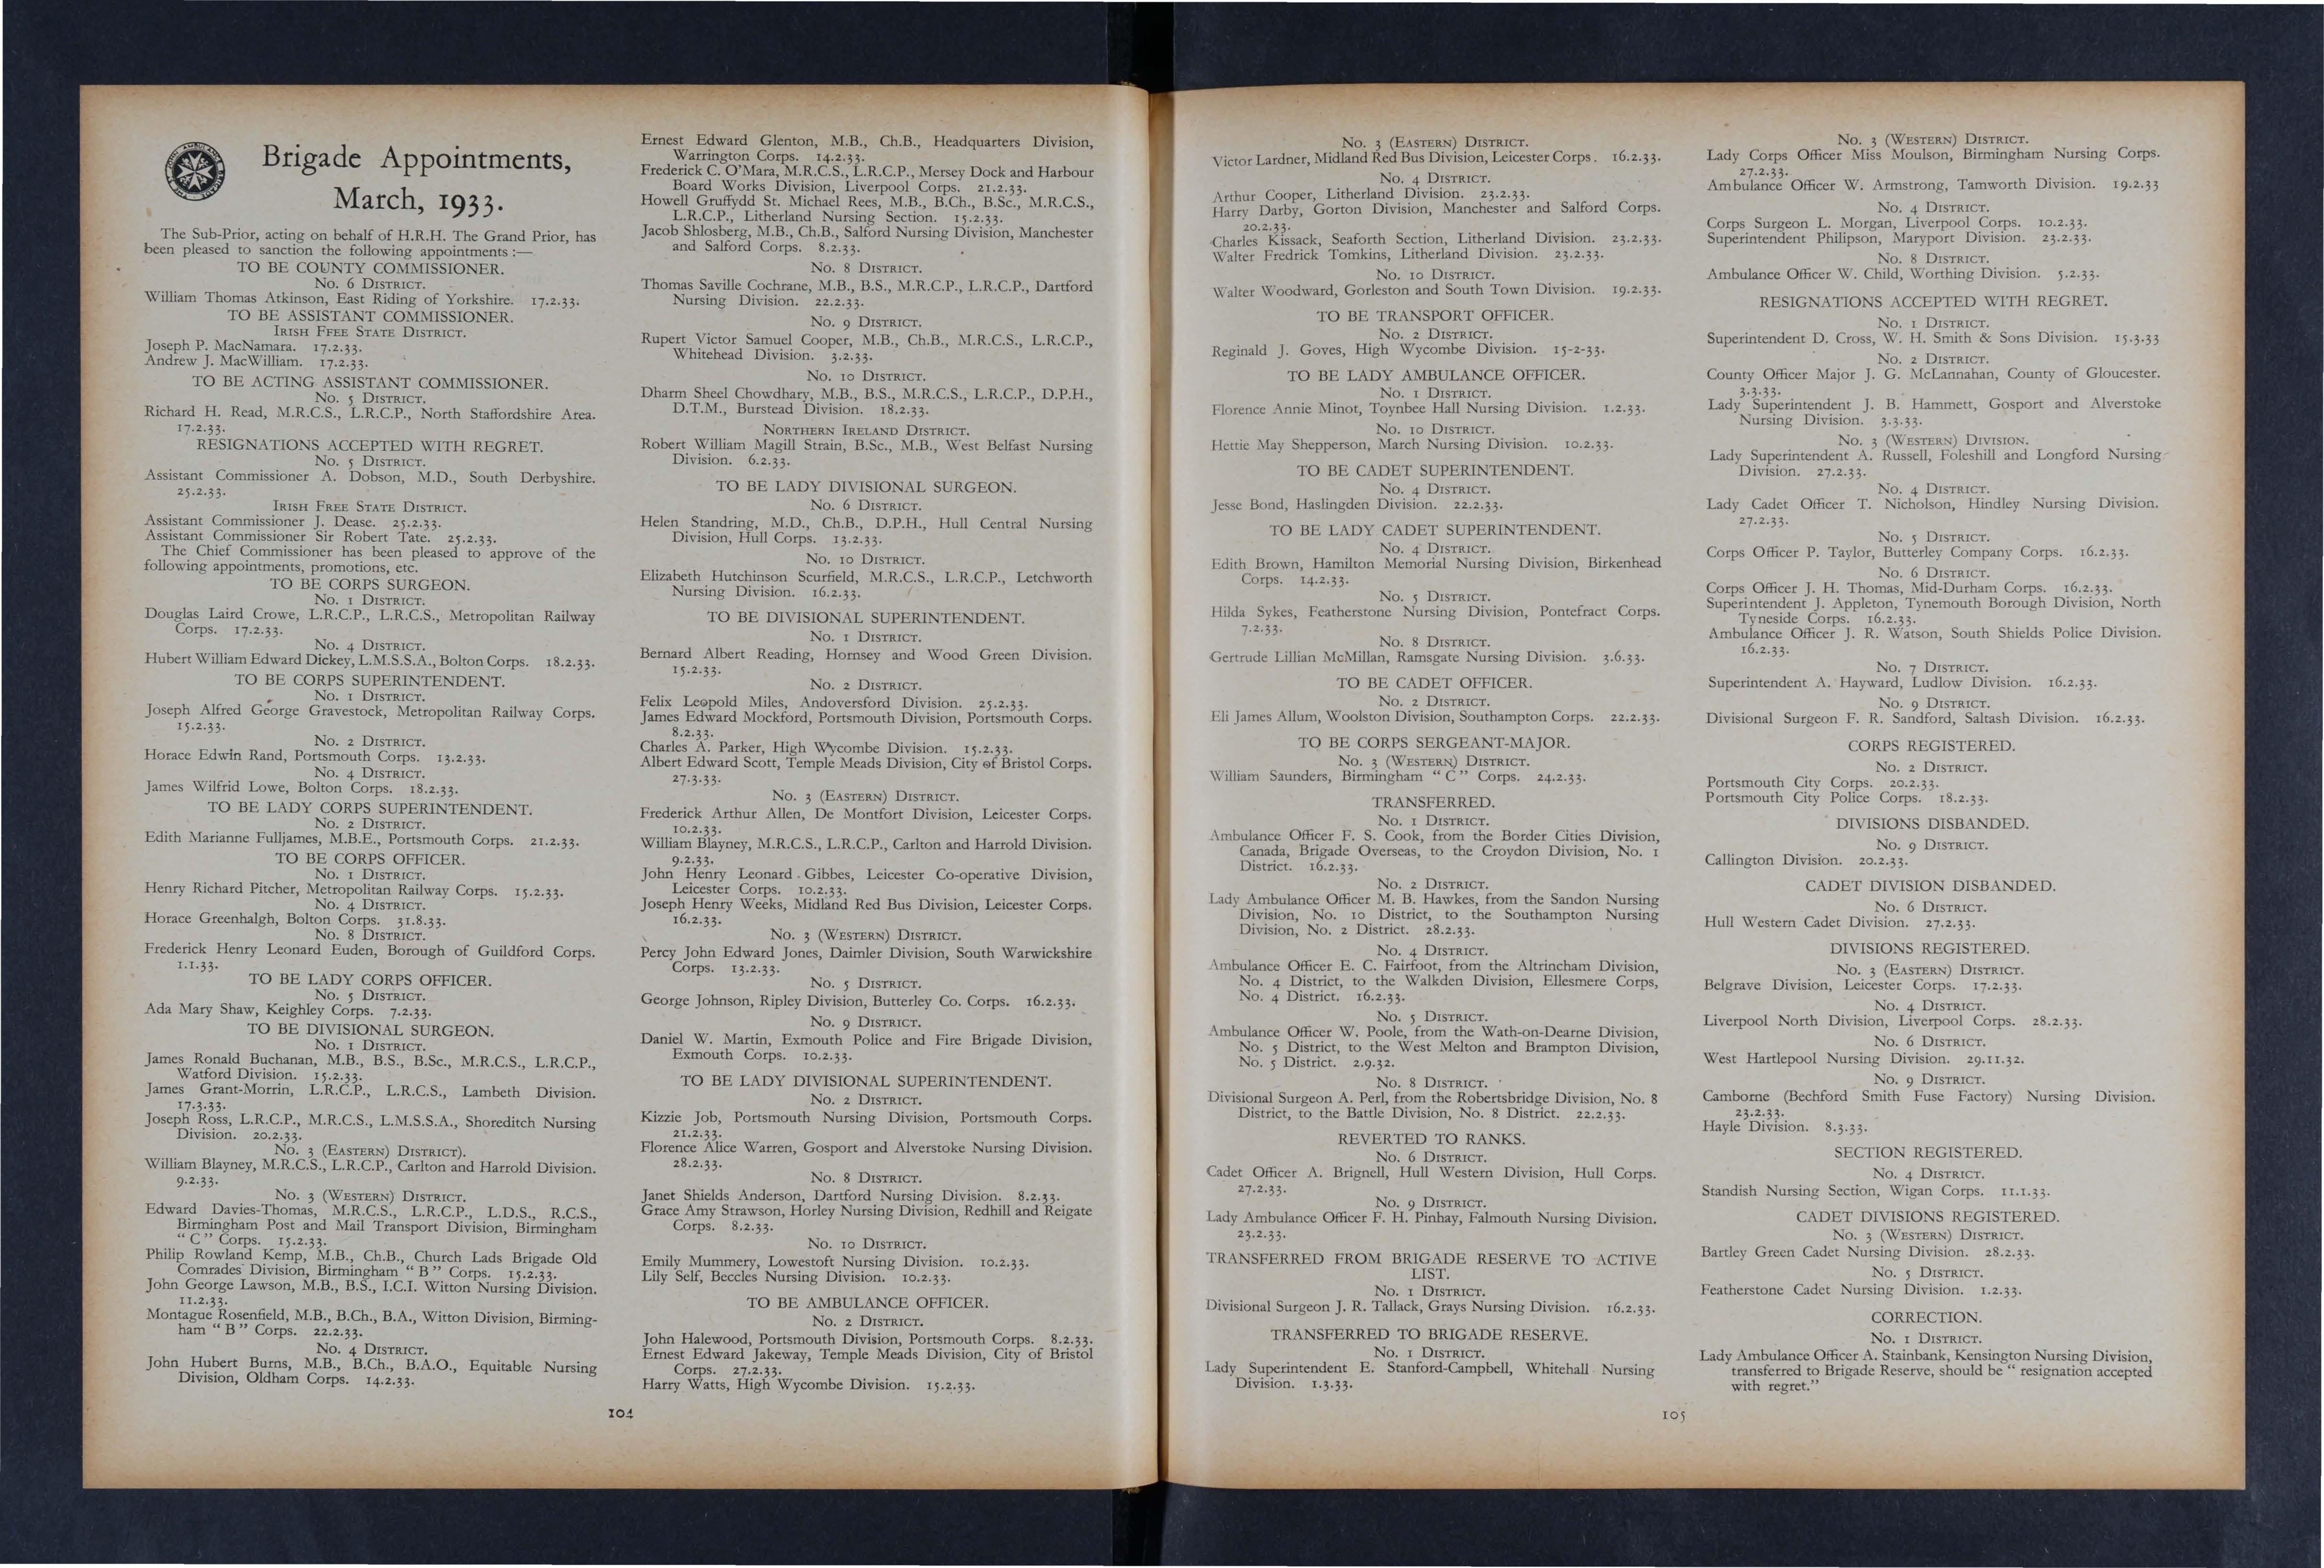 Brigade Appointments,
March, 1933.
The Sub-Prior, acting on behalf of H.R.H. The Grand Prior, has
been pleased to sanction the following appointments :—
TO BE COUNTY COMMISSIONER.
No. 6 District.
William Thomas Atkinson, East Riding of Yorkshire. 17.2.33.
TO BE ASSISTANT COMMISSIONER.
Irish Ffee State District.
Joseph P. MacNamara. 17.2.33.
Andrew J. MacWilliam. 17.2.33.
TO BE ACTING ASSISTANT COMMISSIONER.
No. 5 District.
Richard H. Read, M.R.C.S., L.R.C.P., North Staffordshire Area.
17.2.33.
RESIGNATIONS ACCEPTED WITH REGRET.
No. 5 District.
Assistant Commissioner A. Dobson, M.D., South Derbyshire.
25.2.33.
Irish Free State District.
Assistant Commissioner J. Dease. 25.2.33.
Assistant Commissioner Sir Robert Tate. 25.2.33.
The Chief Commissioner has been pleased to approve of the
following appointments, promotions, etc.
TO BE CORPS SURGEON.
No. 1 District.
Douglas Laird Crowe, L.R.C.P., L.R.C.S., Metropolitan Railway
Corps. 17.2.33.
No. 4 District.
Hubert William Edward Dickey, L.M.S.S.A., Bolton Corps. 18.2.33.
TO BE CORPS SUPERINTENDENT.
No. 1 District.
Joseph Alfred George Gravestock, Metropolitan Railway Corps.
15.2.33.
No. 2 District.
Horace Edwin Rand, Portsmouth Corps. 13.2.33.
No. 4 District.
James Wilfrid Lowe, Bolton Corps. 18.2.33.
TO BE LADY CORPS SUPERINTENDENT.
No. 2 District.
Edith Marianne Fulljames, M.B.E., Portsmouth Corps. 21.2.33.
TO BE CORPS OFFICER.
No. 1 District.
Henry Richard Pitcher, Metropolitan Railway Corps. 15.2.33.
No. 4 District.
Horace Greenhalgh, Bolton Corps. 31.8.33.
No. 8 District.
Frederick Henry Leonard Euden, Borough of Guildford Corps.
1.1.33.
TO BE LADY CORPS OFFICER.
No. 5 District.
Ada Mary Shaw, Keighley Corps. 7.2.33.
TO BE DIVISIONAL SURGEON.
No. 1 District.
James Ronald Buchanan, M.B., B.S., B.Sc., M.R.C.S., L.R.C.P.,
Watford Division. 15.2.33.
James Grant-Morrin, L.R.C.P., L.R.C.S., Lambeth Division.
17.3.33.
Joseph Ross, L.R.C.P., M.R.C.S., L.M.S.S.A., Shoreditch Nursing
Division. 20.2.33.
No. 3 (Eastern) District).
William Blayney, M.R.C.S., L.R.C.P., Carlton and Harrold Division.
9.2.33.
No. 3 (Western) District.
Edward Davies-Thomas, M.R.C.S., L.R.C.P., L.D.S., R.C.S.,
Birmingham Post and Mail Transport Division, Birmingham
“ C ” Corps. 15.2.33.
Philip Rowland Kemp, M.B., Ch.B., Church Lads Brigade Old
Comrades Division, Birmingham “ B ” Corps. 15.2.33.
John George Lawson, M.B., B.S., I.C.I. Witton Nursing Division.
11.2.33.
Montague Rosenfield, M.B., B.Ch., B.A., Witton Division, Birming-
ham “ B ” Corps. 22.2.33.
No. 4 District.
John Hubert Burns, M.B., B.Ch., B.A.O., Equitable Nursing
Division, Oldham Corps. 14.2.33.
Ernest Edward Glenton, M.B., Ch.B., Headquarters Division,
Warrington Corps. 14.2.33.
Frederick C. O’Mara, M.R.C.S., L.R.C.P., Mersey Dock and Harbour
Board Works Division, Liverpool Corps. 21.2.33.
Howell Gruffydd St. Michael Rees, M.B., B.Ch., B.Sc., M.R.C.S.,
L.R.C.P., Litherland Nursing Section. 15.2.33.
Jacob Shlosberg, M.B., Ch.B., Salford Nursing Division, Manchester
and Salford Corps. 8.2.33.
No. 8 District.
Thomas Saville Cochrane, M.B., B.S., M.R.C.P., L.R.C.P., Dartford
Nursing Division. 22.2.33.
No. 9 District.
Rupert Victor Samuel Cooper, M.B., Ch.B., M.R.C.S., L.R.C.P.,
Whitehead Division. 3.2.33.
No. 10 District.
Dharm Sheel Chowdhary, M.B., B.S., M.R.C.S., L.R.C.P., D.P.H.,
D.T.M., Burstead Division. 18.2.33.
Northern Ireland District.
Robert William Magill Strain, B.Sc., M.B., West Belfast Nursing
Division. 6.2.33.
TO BE LADY DIVISIONAL SURGEON.
No. 6 District.
Helen Standring, M.D., Ch.B., D.P.H., Hull Central Nursing
Division, Hull Corps. 13.2.33.
No. 10 District.
Elizabeth Hutchinson Scurfield, M.R.C.S., L.R.C.P., Letchworth
Nursing Division. 16.2.33.
TO BE DIVISIONAL SUPERINTENDENT.
No. 1 District.
Bernard Albert Reading, Hornsey and Wood Green Division.
15.2.33.
No. 2 District.
Felix Leopold Miles, Andoversford Division. 25.2.33.
James Edward Mockford, Portsmouth Division, Portsmouth Corps.
8.2.33.
Charles A. Parker, High Wycombe Division. 15.2.33.
Albert Edward Scott, Temple Meads Division, City of Bristol Corps.
27.3.33.
No. 3 (Eastern) District.
Frederick Arthur Allen, De Montfort Division, Leicester Corps.
10.2.33.
William Blayney, M.R.C.S., L.R.C.P., Carlton and Harrold Division.
9.2.33.
John Henry Leonard Gibbes, Leicester Co-operative Division,
Leicester Corps. 10.2.33.
Joseph Henry Weeks, Midland Red Bus Division, Leicester Corps.
16.2.33.
No. 3 (Western) District.
Percy John Edward Jones, Daimler Division, South Warwickshire
Corps. 13.2.33.
No. 5 District.
George Johnson, Ripley Division, Butterley Co. Corps. 16.2.33.
No. 9 District.
Daniel W. Martin, Exmouth Police and Fire Brigade Division,
Exmouth Corps. 10.2.33.
TO BE LADY DIVISIONAL SUPERINTENDENT.
No. 2 District.
Kizzie Job, Portsmouth Nursing Division, Portsmouth Corps.
21.2.33.
Florence Alice Warren, Gosport and Alverstoke Nursing Division.
28.2.33.
No. 8 District.
Janet Shields Anderson, Dartford Nursing Division. 8.2.33.
Grace Amy Strawson, Horley Nursing Division, Redhill and Reigate
Corps. 8.2.33.
No. 10 District.
Emily Mummery, Lowestoft Nursing Division. 10.2.33.
Lily Self, Beccles Nursing Division. 10.2.33.
TO BE AMBULANCE OFFICER.
No. 2 District.
John Halewood, Portsmouth Division, Portsmouth Corps. 8.2.33.
Ernest Edward Jakeway, Temple Meads Division, City of Bristol
Corps. 27.2.33.
Harry Watts, High Wycombe Division. 15.2.33.
104
No. 3 (Eastern) District.
Victor Lardner, Midland Red Bus Division, Leicester Corps. 16.2.33.
No. 4 District.
Arthur Cooper, Litherland Division. 23.2.33.
Harry Darby, Gorton Division, Manchester and Salford Corps.
20.2.33.
Charles Kissack, Seaforth Section, Litherland Division. 23.2.33.
Walter Fredrick Tomkins, Litherland Division. 23.2.33.
No. 10 District.
Walter Woodward, Gorleston and South Town Division. 19.2.33.
TO BE TRANSPORT OFFICER.
No. 2 District.
Reginald J. Goves, High Wycombe Division. 15-2-33.
TO BE LADY AMBULANCE OFFICER.
No. 1 District.
Florence Annie Minot, Toynbee Hall Nursing Division. 1.2.33.
No. 10 District.
Hettie May Shepperson, March Nursing Division. 10.2.33.
TO BE CADET SUPERINTENDENT.
No. 4 District.
Jesse Bond, Haslingden Division. 22.2.33.
TO BE LADY CADET SUPERINTENDENT.
No. 4 District.
Edith Brown, Hamilton Memorial Nursing Division, Birkenhead
Corps. 14.2.33.
No. 5 District.
Hilda Sykes, Featherstone Nursing Division, Pontefract Corps.
7.2.33.
No. 8 District.
Gertrude Lillian McMillan, Ramsgate Nursing Division. 3.6.33.
TO BE CADET OFFICER.
No. 2 District.
Eli James Allum, Woolston Division, Southampton Corps. 22.2.33.
TO BE CORPS SERGEANT-MAJOR.
No. 3 (Western) District.
William Saunders, Birmingham “ C ” Corps. 24.2.33.
TRANSFERRED.
No. 1 District.
Ambulance Officer F. S. Cook, from the Border Cities Division,
Canada, Brigade Overseas, to the Croydon Division, No. 1
District. 16.2.33.
No. 2 District.
Lady Ambulance Officer M. B. Hawkes, from the Sandon Nursing
Division, No. 10 District, to the Southampton Nursing
Division, No. 2 District. 28.2.33.
No. 4 District.
Ambulance Officer E. C. Fairfoot, from the Altrincham Division,
No. 4 District, to the Walkden Division, Ellesmere Corps,
No. 4 District. 16.2.33.
No. 5 District.
Ambulance Officer W. Poole, from the Wath-on-Dearne Division,
No. 5 District, to the West Melton and Brampton Division,
No. 5 District. 2.9.32.
No. 8 District.
Divisional Surgeon A. Perl, from the Robertsbridge Division, No. 8
District, to the Battle Division, No. 8 District. 22.2.33.
REVERTED TO RANKS.
No. 6 District.
Cadet Officer A. Brignell, Hull Western Division, Hull Corps.
27.2.33.
No. 9 District.
Lady Ambulance Officer F. H. Pinhay, Falmouth Nursing Division.
23.2.33.
TRANSFERRED FROM BRIGADE RESERVE TO ACTIVE
LIST.
No. 1 District.
Divisional Surgeon J. R. Tallack, Grays Nursing Division. 16.2.33.
TRANSFERRED TO BRIGADE RESERVE.
No. 1 District.
Lady Superintendent E. Stanford-Campbell, Whitehall Nursing
Division. 1.3.33.
No. 3 (Western) District.
Lady Corps Officer Miss Moulson, Birmingham Nursing Corps.
27.2.33.
Ambulance Officer W. Armstrong, Tamworth Division. 19.2.33
No. 4 District.
Corps Surgeon L. Morgan, Liverpool Corps. 10.2.33.
Superintendent Philipson, Maryport Division. 23.2.33.
No. 8 District.
Ambulance Officer W. Child, Worthing Division. 5.2.33.
RESIGNATIONS ACCEPTED WITH REGRET.
No. 1 District.
Superintendent D. Cross, W. H. Smith & Sons Division. 15.3.33
No. 2 District.
County Officer Major J. G. McLannahan, County of Gloucester.
3.3.33.
Lady Superintendent J. B. Hammett, Gosport and Alverstoke
Nursing Division. 3.3.33.
No. 3 (Western) Division.
Lady Superintendent A. Russell, Foleshill and Longford Nursing
Division. 27.2.33.
No. 4 District.
Lady Cadet Officer T. Nicholson, Hindley Nursing Division.
27.2.33.
No. 5 District.
Corps Officer P. Taylor, Butterley Company Corps. 16.2.33.
No. 6 District.
Corps Officer J. H. Thomas, Mid-Durham Corps. 16.2.33.
Superintendent J. Appleton, Tynemouth Borough Division, North
Tyneside Corps. 16.2.33.
Ambulance Officer J. R. Watson, South Shields Police Division.
16.2.33.
No. 7 District.
Superintendent A. Hayward, Ludlow Division. 16.2.33.
No. 9 District.
Divisional Surgeon F. R. Sandford, Saltash Division. 16.2.33.
CORPS REGISTERED.
No. 2 District.
Portsmouth City Corps. 20.2.33.
Portsmouth City Police Corps. 18.2.33.
DIVISIONS DISBANDED.
No. 9 District.
Callington Division. 20.2.33.
CADET DIVISION DISBANDED.
No. 6 District.
Hull Western Cadet Division. 27.2.33.
DIVISIONS REGISTERED.
No. 3 (Eastern) District.
Belgrave Division, Leicester Corps. 17.2.33.
No. 4 District.
Liverpool North Division, Liverpool Corps. 28.2.33.
No. 6 District.
West Hartlepool Nursing Division. 29.11.32.
No. 9 District.
Camborne (Bechford Smith Fuse Factory) Nursing Division.
23.2.33.
Hayle Division. 8.3.33.
SECTION REGISTERED.
No. 4 District.
Standish Nursing Section, Wigan Corps. 11.1.33.
CADET DIVISIONS REGISTERED.
No. 3 (Western) District.
Bartley Green Cadet Nursing Division. 28.2.33.
No. 5 District.
Featherstone Cadet Nursing Division. 1.2.33.
CORRECTION.
No. 1 District.
Lady Ambulance Officer A. Stainbank, Kensington Nursing Division,
transferred to Brigade Reserve, should be “ resignation accepted
with regret.”
105